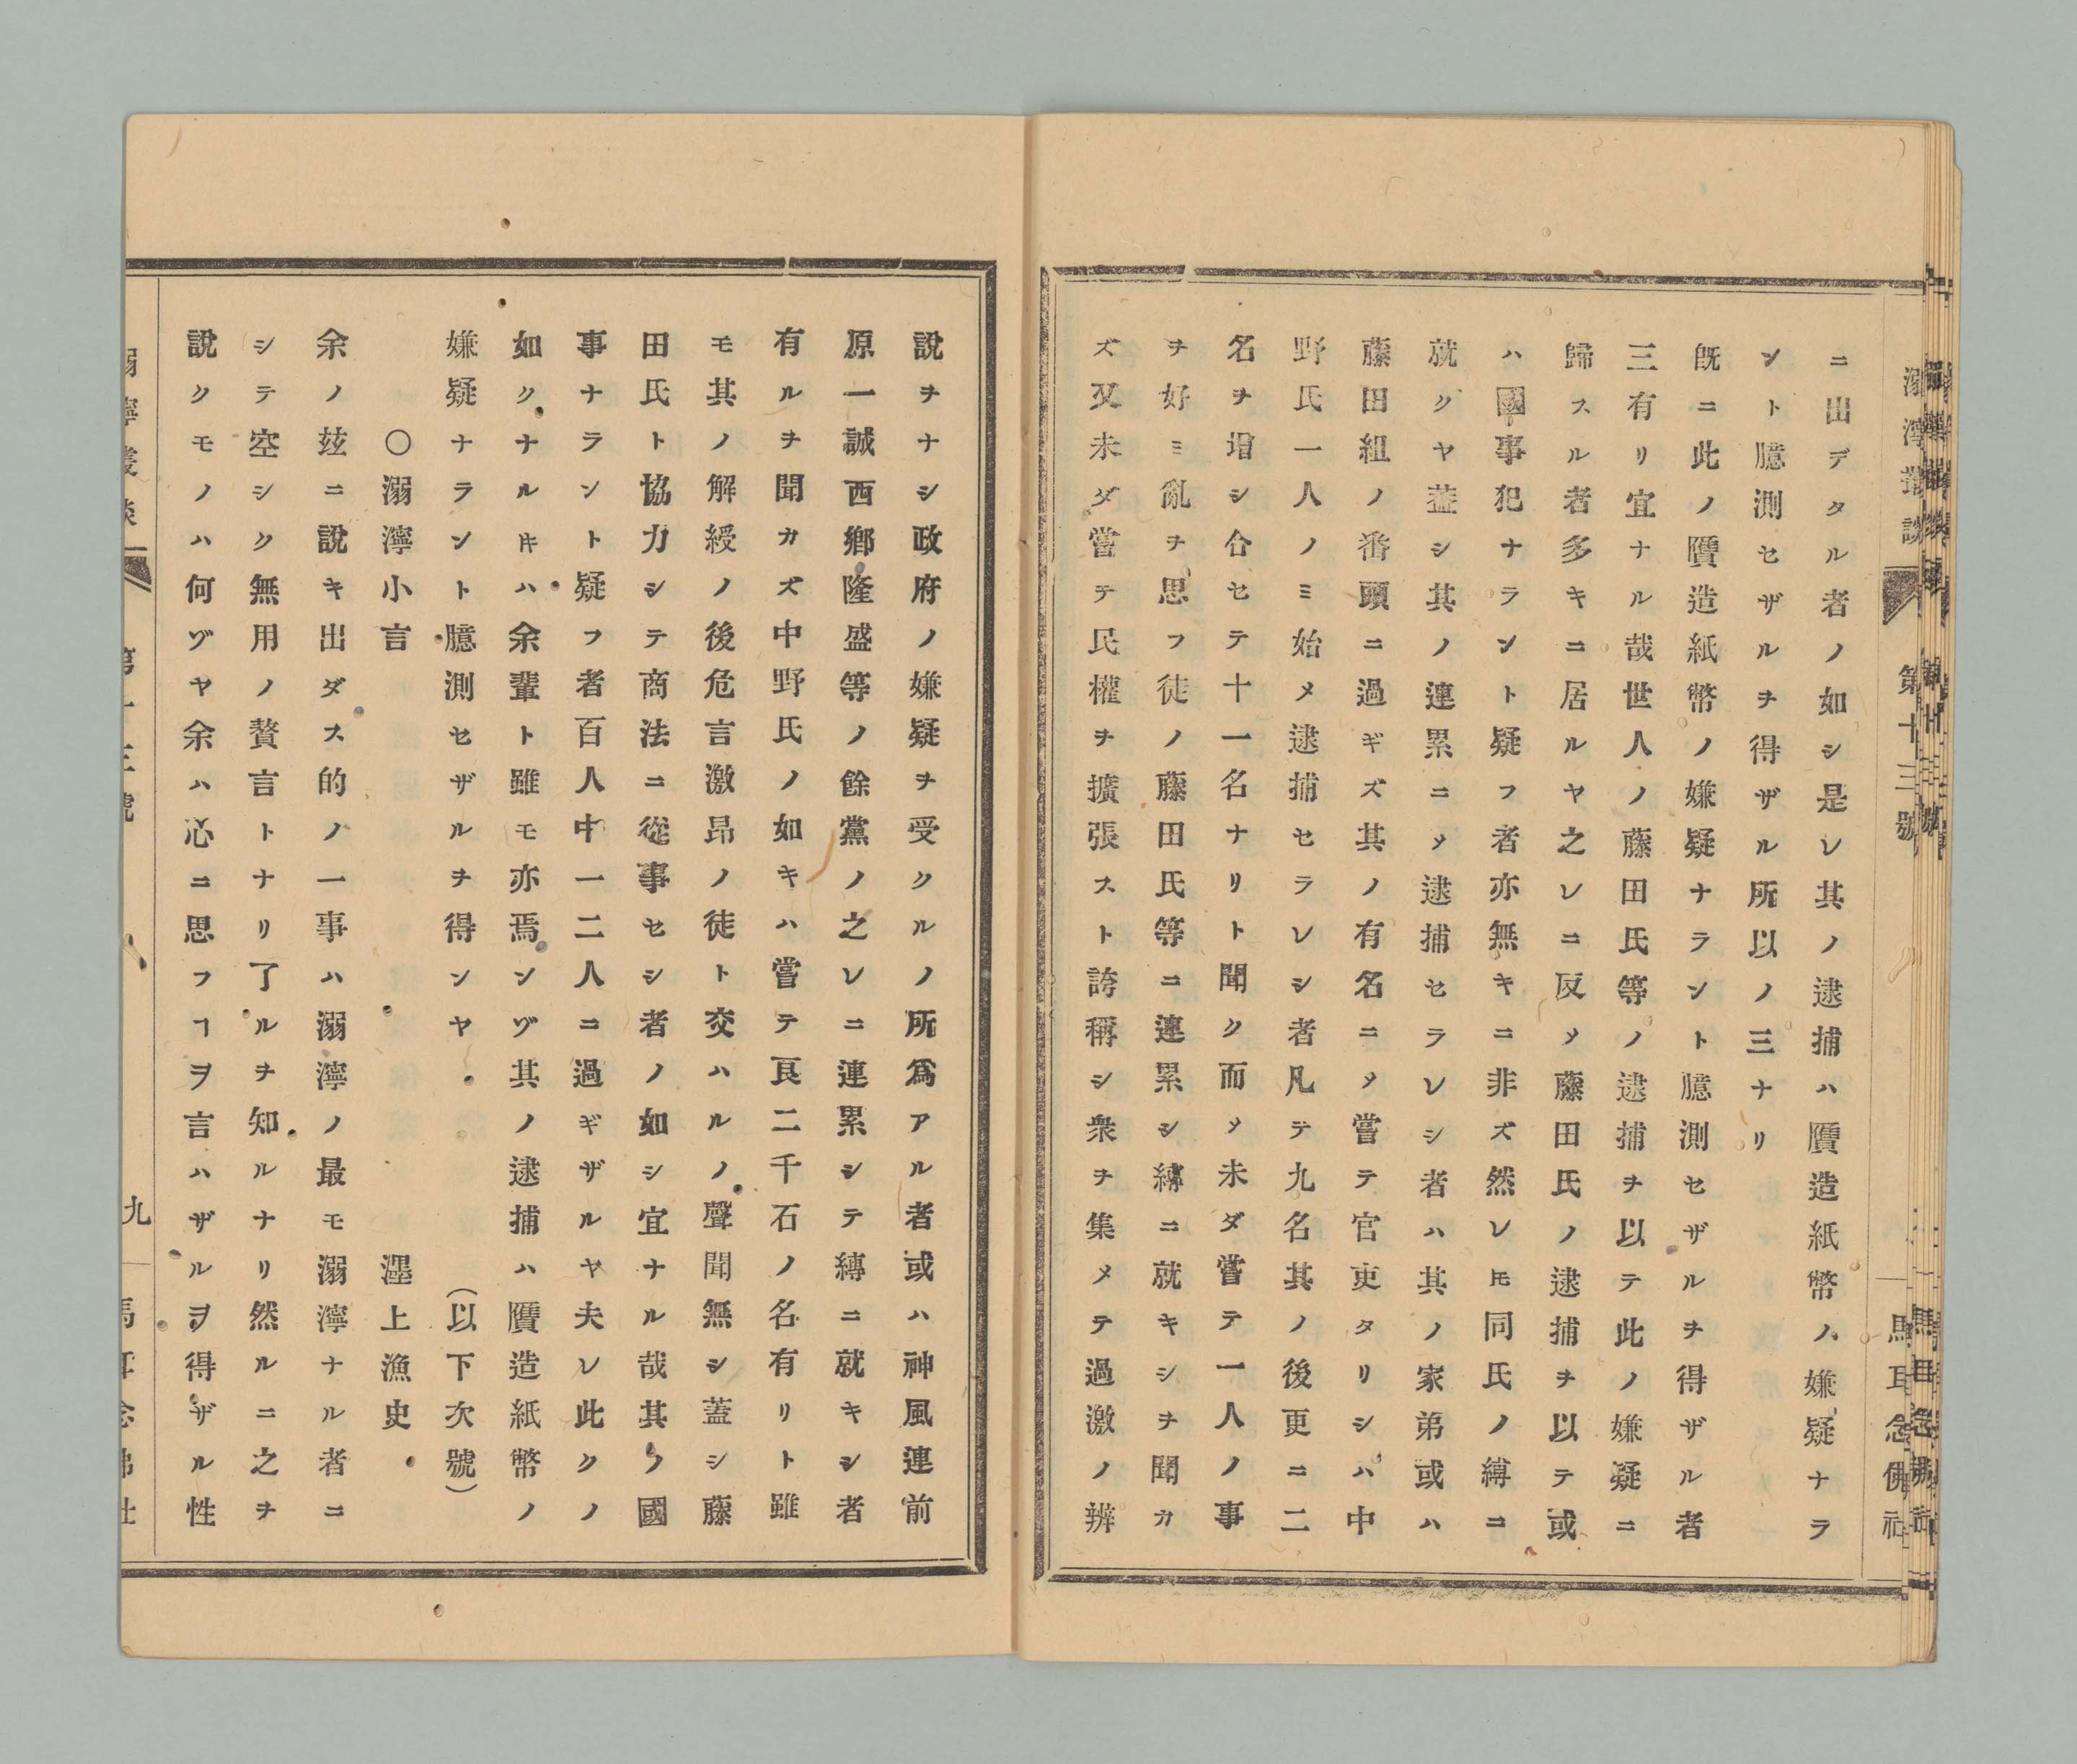 溺濘叢談 第十三號 馬耳念佛社
ニ出デタル者ノ如シ是レ其ノ逮捕ハ贋造紙幣ノ嫌疑ナラ
ント臆測セザルヲ得ザル所以ノ三ナリ
既ニ此ノ贋造紙幣ノ嫌疑ナラント臆測セザルヲ得ザル者
三有リ宜ナル哉世人ノ藤田氏等ノ逮捕ヲ以テ此ノ嫌疑ニ
歸スル者多キニ居ルヤ之レニ反メ藤田氏ノ逮捕ヲ以テ或
ハ國事犯ナラント疑フ者亦無キニ非ズ然レ𪜈同氏ノ縛ニ
就クヤ蓋シ其ノ連累ニメ逮捕セラレシ者ハ其ノ家弟或ハ
藤田組ノ番頭ニ過ギズ其ノ有名ニメ嘗テ官吏タリシハ中
野氏一人ノミ始メ逮捕セラレシ者凡テ九名其ノ後更ニ二
名ヲ增シ合セテ十一名ナリト聞ク而メ未ダ嘗テ一人ノ事
ヲ好ミ亂ヲ思フ徒ノ藤田氏等ニ連累シ縛ニ就キシヲ聞カ
ズ又未ダ嘗テ民權ヲ擴張スト誇稱シ衆ヲ集メテ過激ノ辨
說ヲナシ政府ノ嫌疑ヲ受クルノ所爲アル者或ハ神風連前
原一誠西鄉隆盛等ノ餘黨ノ之レニ連累シテ縛ニ就キシ者
有ルヲ聞カズ中野氏ノ如キハ嘗テ良二千石ノ名有リト雖
モ其ノ解綬ノ後危言激昂ノ徒ト交ハルノ聲聞無シ蓋シ藤
田氏ト協力シテ商法ニ從事セシ者ノ如シ宜ナル哉其ノ國
事ナラント疑フ者百人中一二人ニ過ギザルヤ夫レ此クノ
如クナルキハ余輩ト雖モ亦焉ンゾ其ノ逮捕ハ贋造紙幣ノ
嫌疑ナラント臆測セザルヲ得ンヤ (以下次號)
〇溺濘小言 漥上漁史
余ノ玆ニ說キ出ダス的ノ一事ハ溺濘ノ最モ溺濘ナル者ニ
シテ空シク無用ノ贅言トナリ了ルヲ知ルナリ然ルニ之ヲ
說クモノハ何ヅヤ余ハ心ニ思フヿヲ言ハザルヲ得ザル性
溺濘叢談 第十三號 九 馬耳念佛社